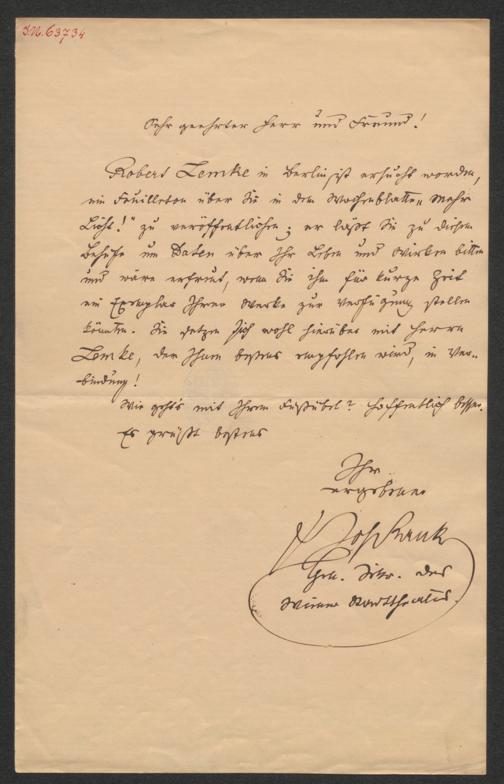 I.N. 63734
Sehr geehrter Herr und Freund!
Robert Lemke in Berlin ist ersucht worden,
ein Feuilleton über Sie in dem Wochenblatte „Mehr
Licht!" zu veröffentlichen; er läßt Sie zu diesem
Behufe um Daten über Ihr Leben und Wirken bitten
und wäre erfreut, wenn Sie ihm für kurze Zeit
ein Exemplar Ihrer Werke zur Verfügung stellen
könnten. Sie setzen sich wohl hierüber mit Herrn
Lemke, der Ihnen bestens empfohlen wird, in Ver-
bindung!
Wie geht's mit Ihrem Fußübel? Hoffentlich besser.
Es grüßt bestens
Ihr
ergebener
Jos Rank
Gen. Sekr. des
Wiener Stadttheaters.